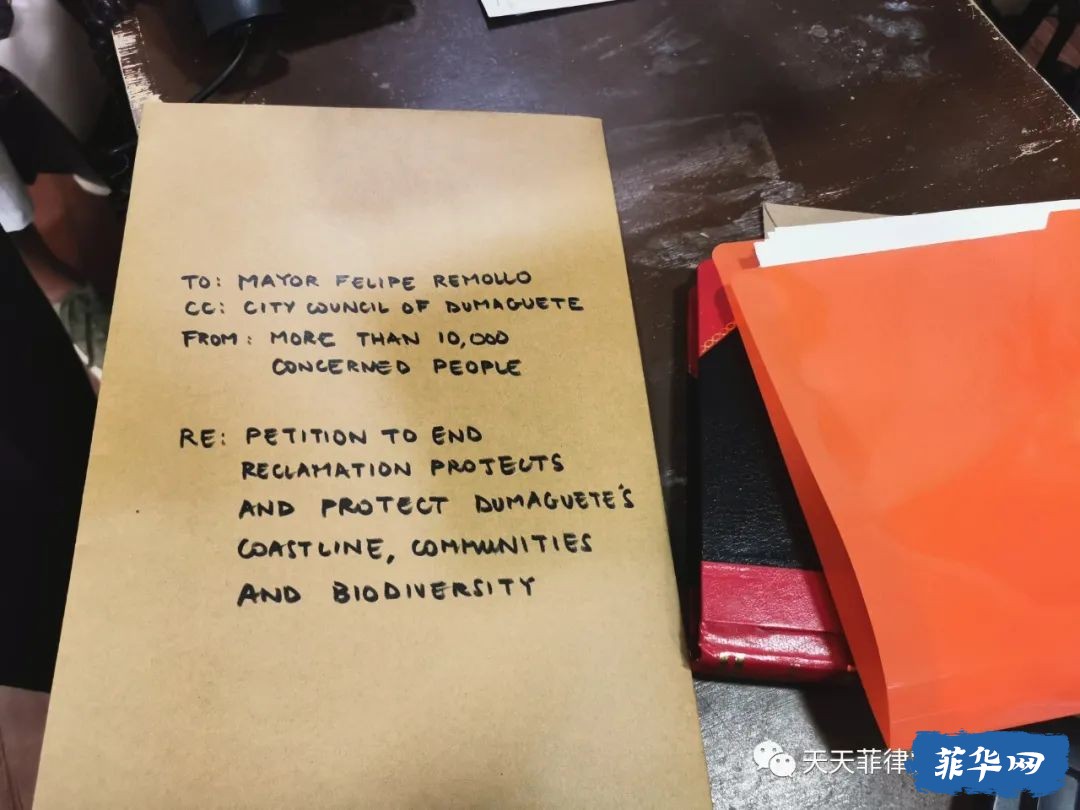 TO: MAYOR FELIPE REMOLLO
CC: CITY COUNCIL OF DUMAGUETE
FROM: MORE THAN 10,000
CONCERNED PEOPLE
RE: PETITION TO END
RECLAMATION PROJECTS
AND PROTECT DUMAGUETE'S
COASTLINE, COMMUNITIES
AND BIODIVERSITY
天天菲律
菲华网